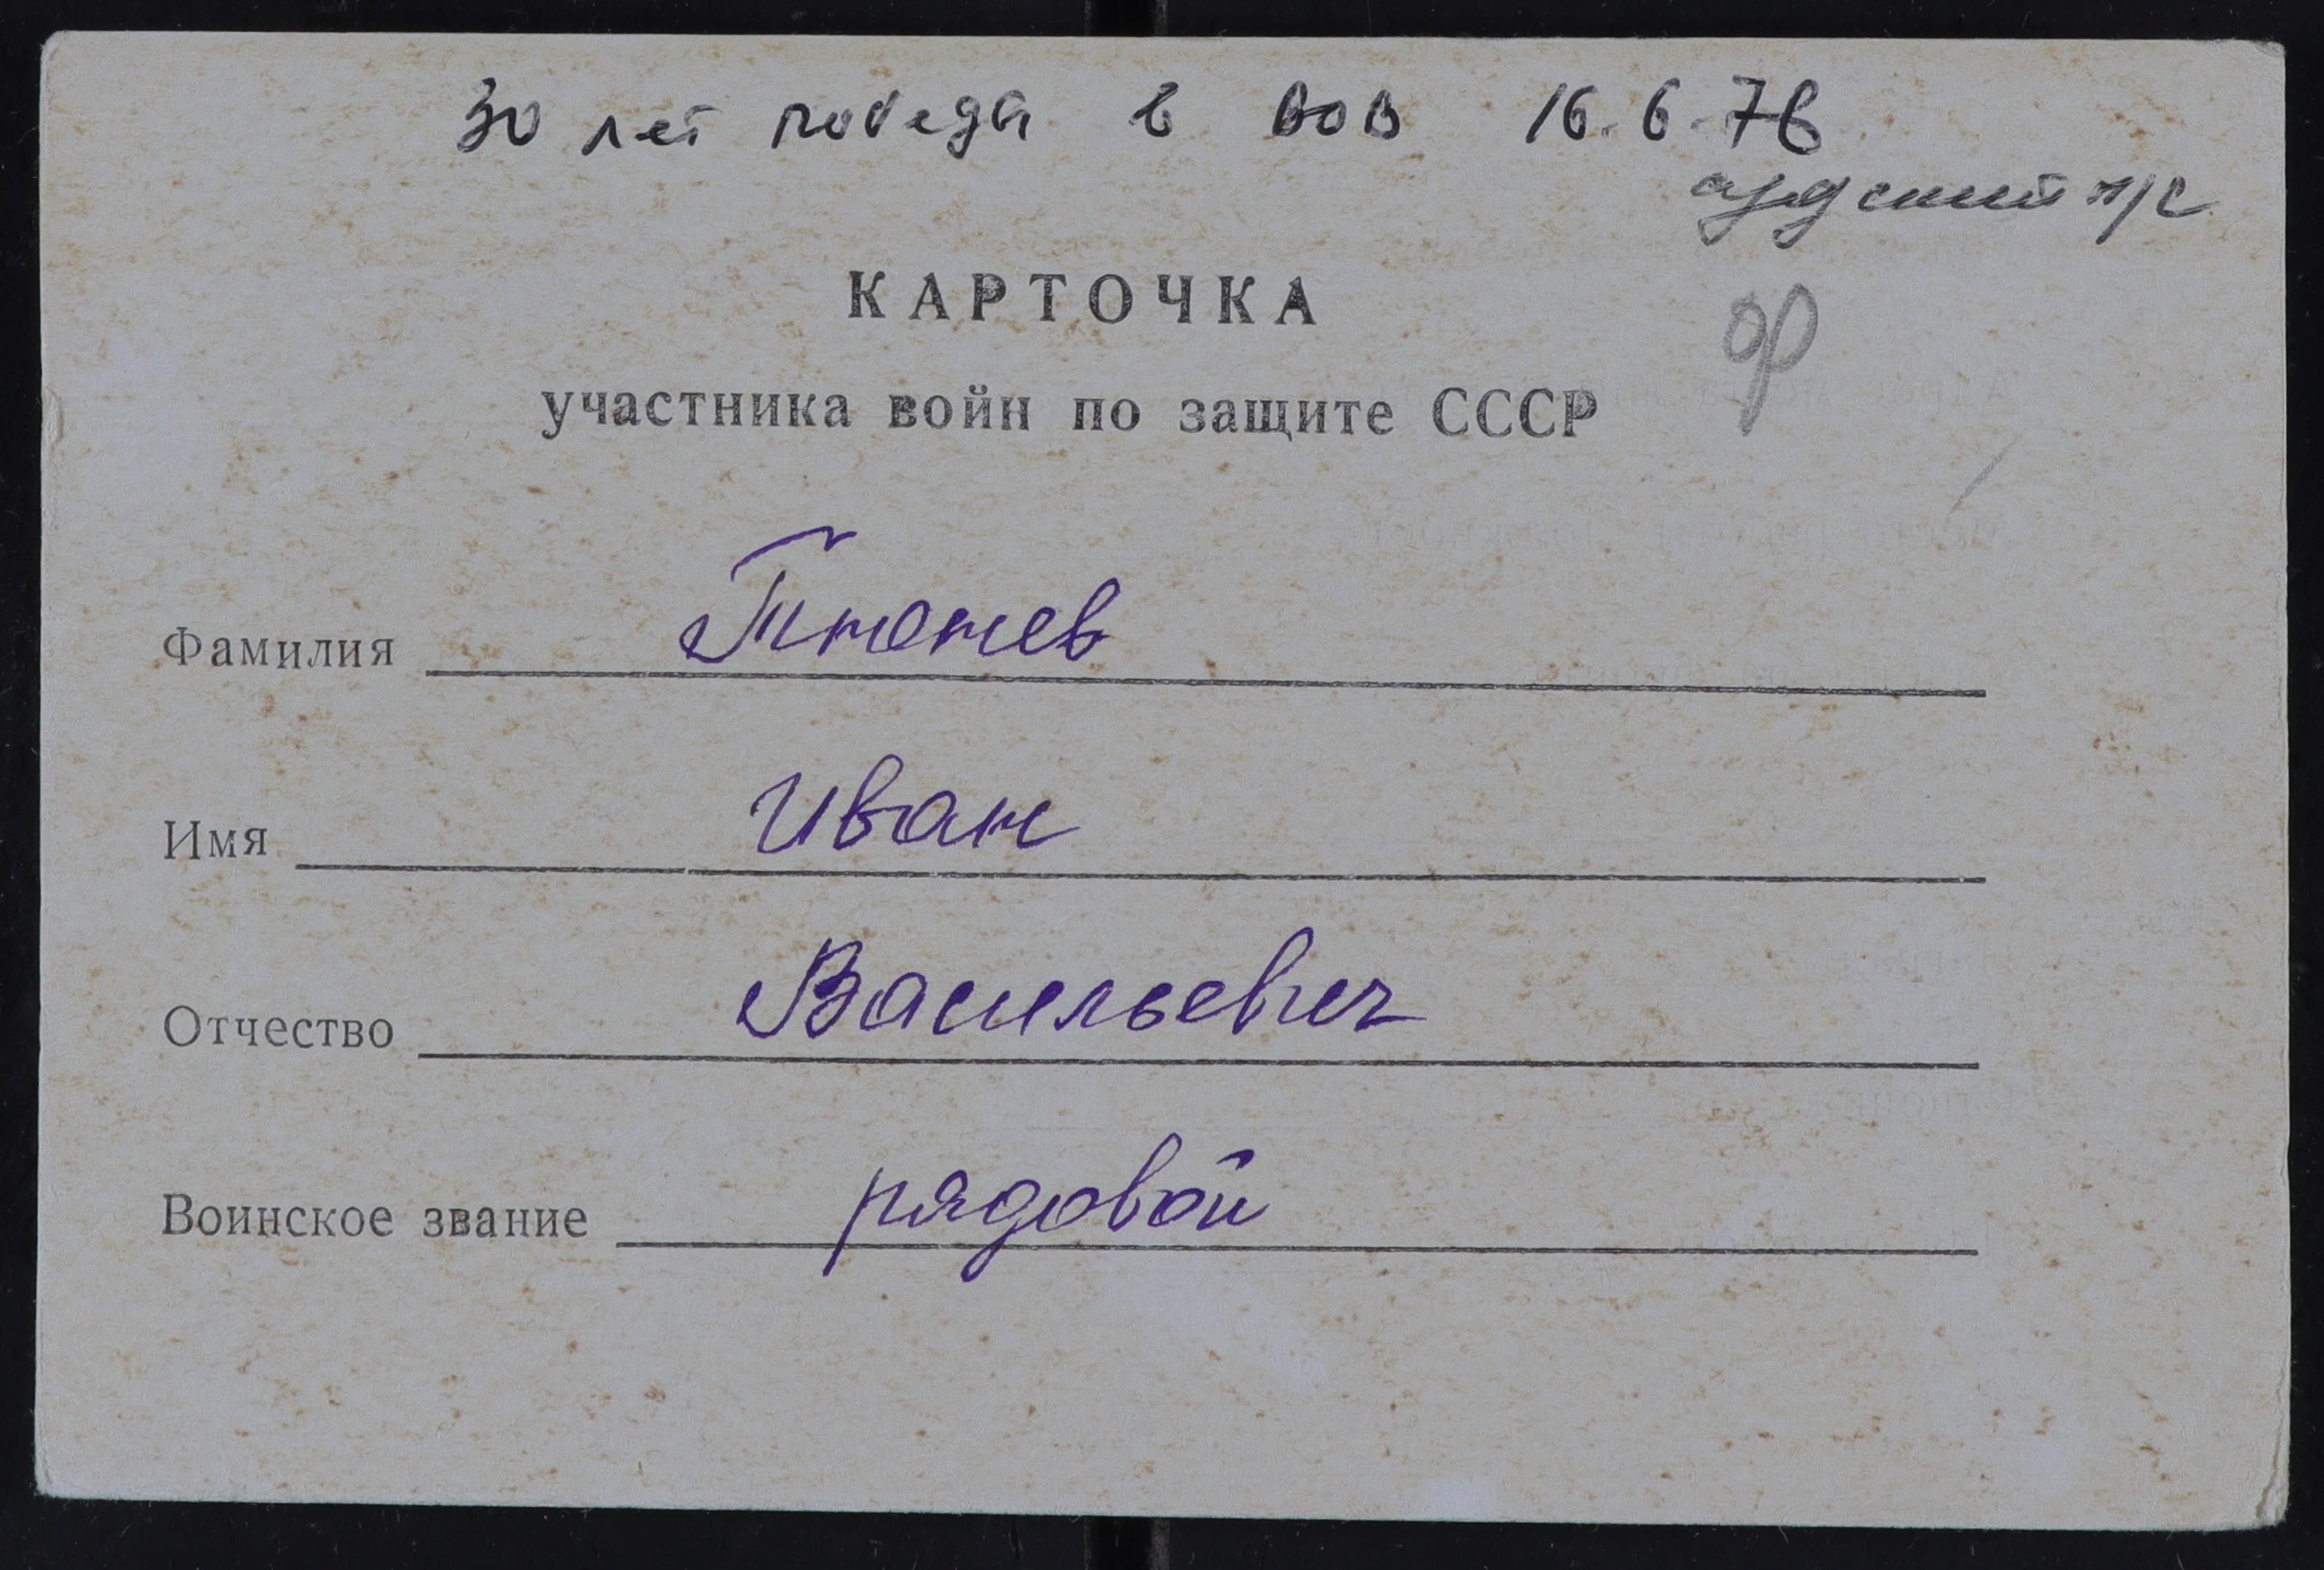 30 лет победа в ВОВ 16.6.76
с/с
КАРТОЧКА
участника войн по защите СССР
Фамилия Тнютнев
Имя Иван
Отчество Васильевич
Воинское звание рядовой